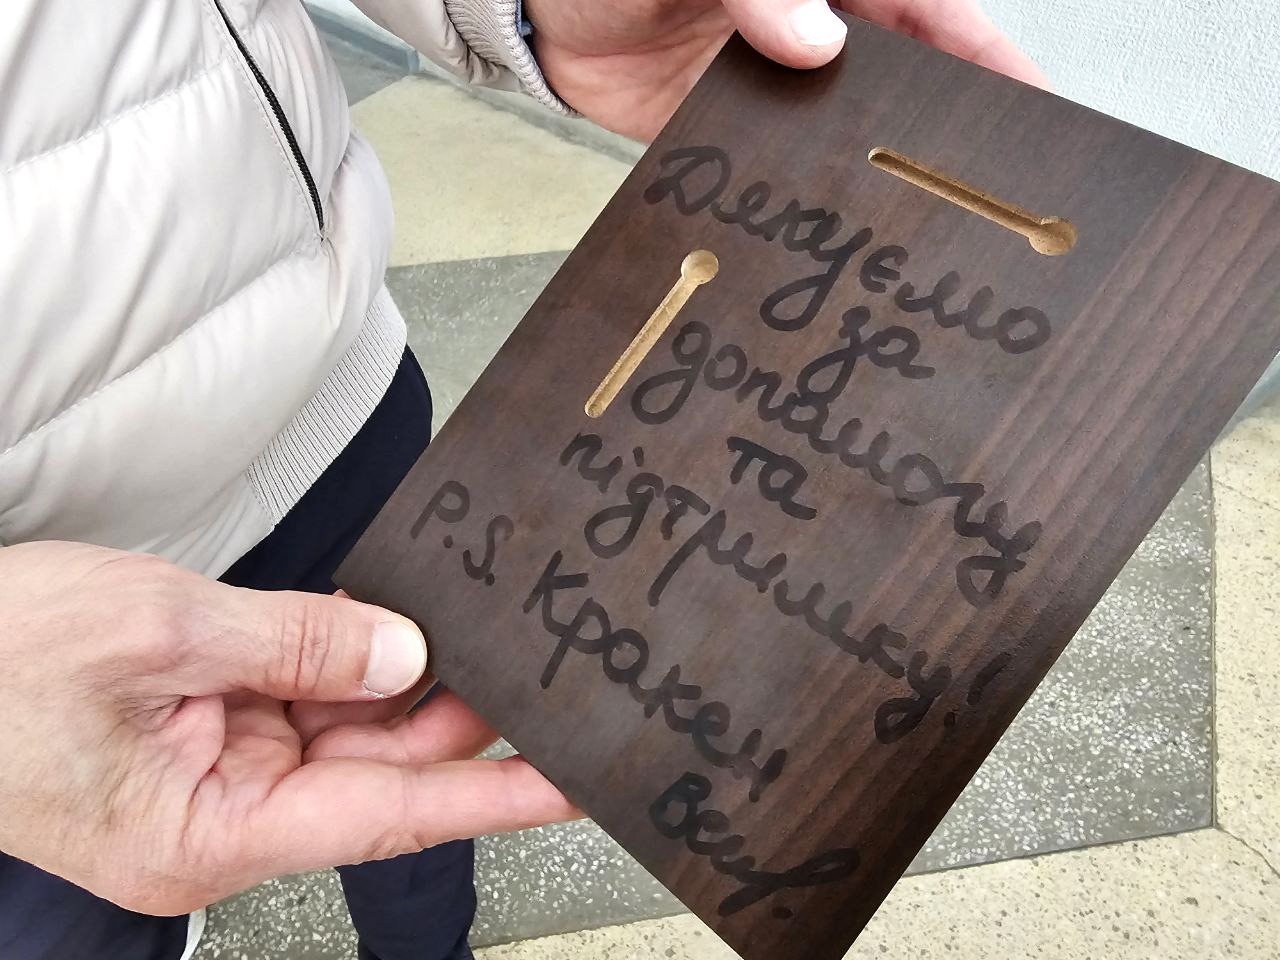 Дякуємо
за
допомогу
та
підтримку!
P.S. Кракен